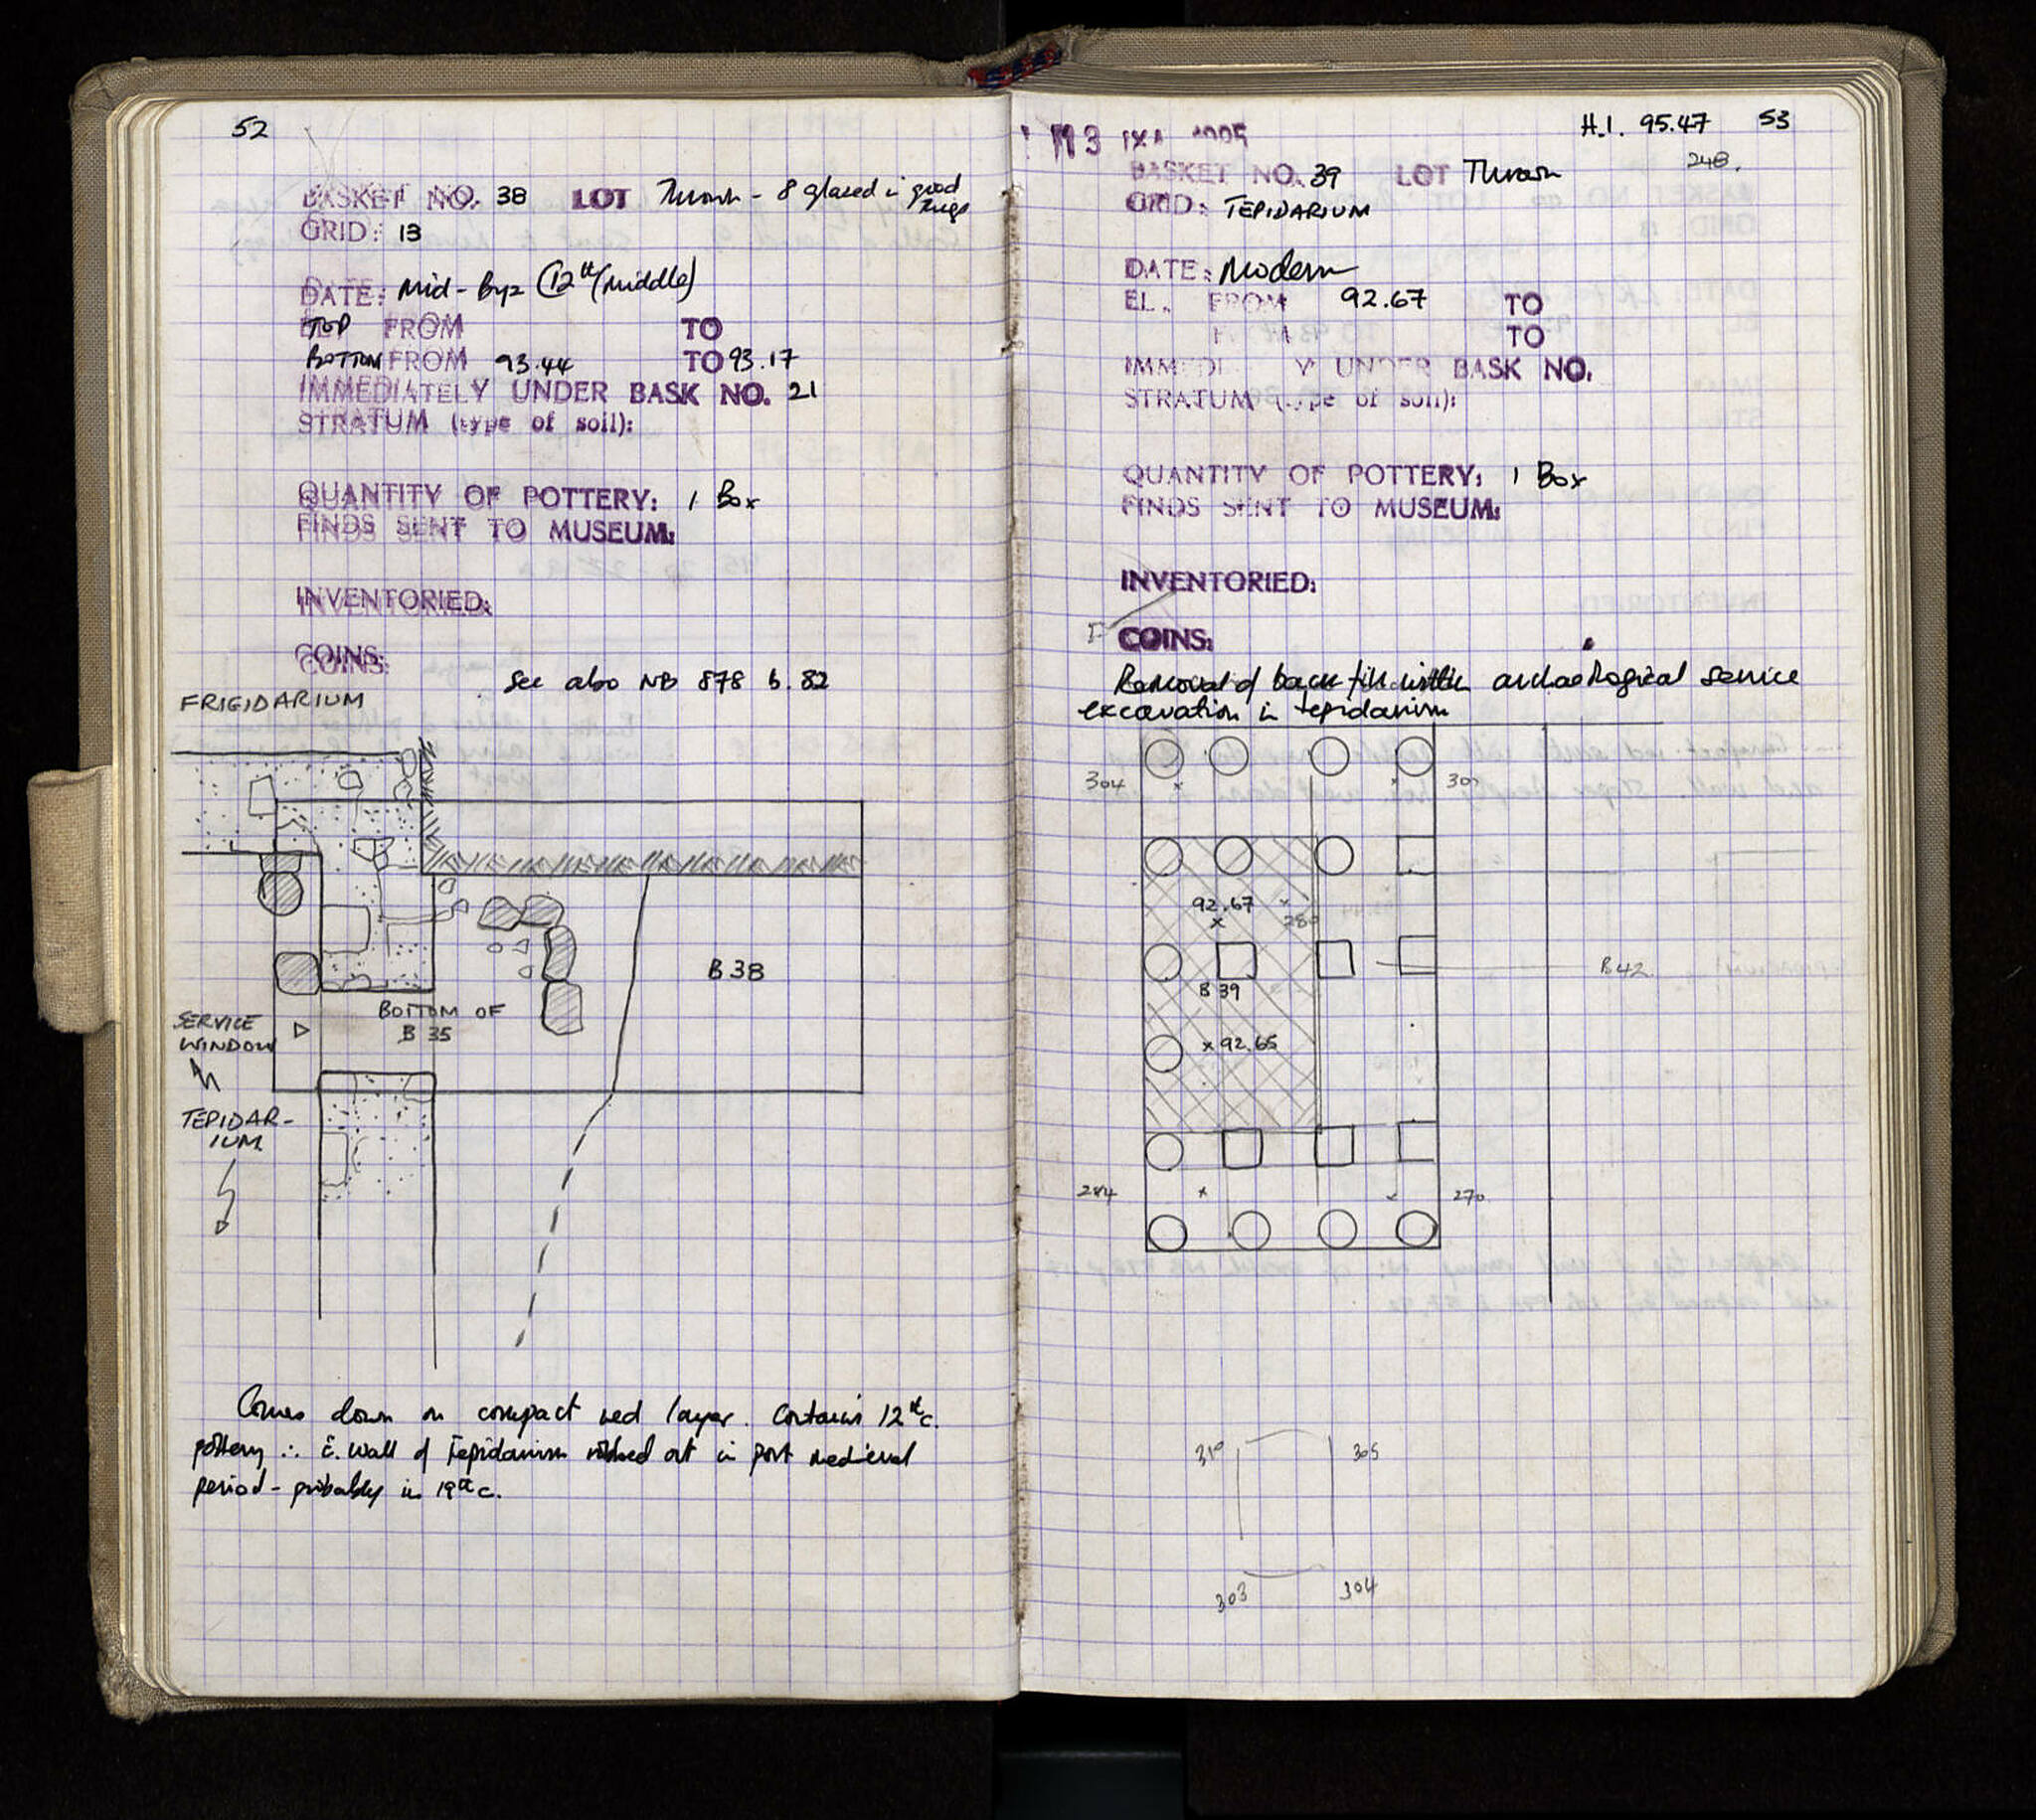 52
BASKET NO. 38 LOT Thrown - 8 glazed in good
frags
GRID: 13
DATE: Mid-Byz (12th/middle)
TOP FROM TO
BOTTOM FROM 93.44 TO 93.17
IMMEDIATELY UNDER BASK NO. 21
STRATUM (type of soil):
QUANTITY OF POTTERY: 1 Box
FINDS SENT TO MUSEUM:
INVENTORIED:
COINS:
See also NB 878 b. 82
FRIGIDARIUM
B 38
BOTTOM OF
B 35
SERVICE
WINDOW
TEPIDAR-
IUM
Comes down on compact red layer. Contains 12th c.
pottery ∴ E. wall of Tepidarium robbed out in post medieval
period - probably in 19th c.
H.I. 95.47 53
248.
BASKET NO. 39 LOT Thrown
GRID: TEPIDARIUM
DATE: Modern
EL. FROM 92.67 TO
TO
UNDER BASK NO.
STRATUM (type of soil):
QUANTITY OF POTTERY: 1 Box
FINDS SENT TO MUSEUM:
INVENTORIED:
COINS:
Removal of back fill within archaeological service
excavation in tepidarium
304
92.67
B 39
B 42.
x 92.65
284
270
310 305
303 304